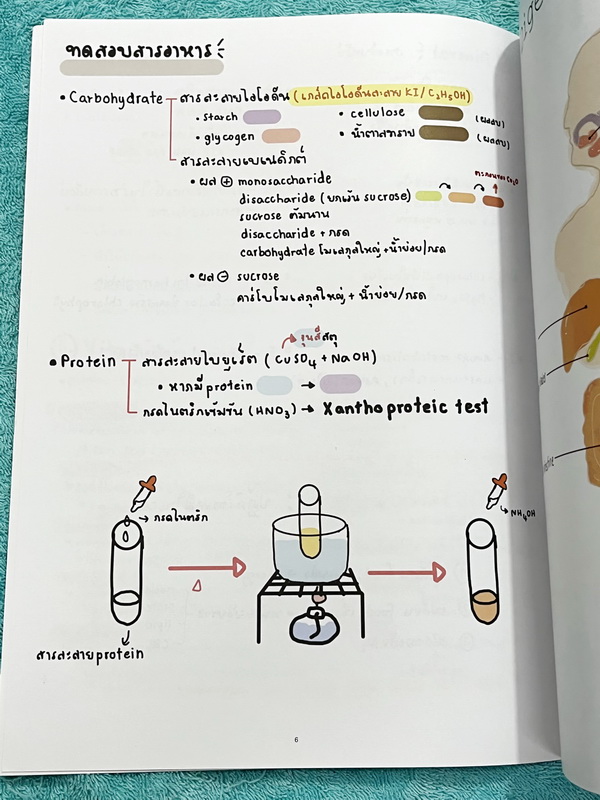 ทดสอบสารอาหาร
• Carbohydrate สารละลายไอโอดีน (เกล็ดไอโอดีนละลาย KI/C₂H₅OH)
• starch • cellulose (ผลลบ)
• glycogen • น้ำตาลทราย (ผลลบ)
สารละลายเบเนดิกต์
• ผล ⊕ monosaccharide ตะกอนของ Cu₂O
disaccharide (ยกเว้น sucrose)
sucrose ต้มนาน
disaccharide + กรด
carbohydrate โมเลกุลใหญ่ + น้ำย่อย/กรด
• ผล ⊖ sucrose
คาร์โบโมเลกุลใหญ่ + น้ำย่อย/กรด
จุนสีสตุ
• Protein สารละลายไบยูเร็ต (CuSO₄ + NaOH)
• หากมี protein →
กรดไนตริกเข้มข้น (HNO₃) → Xanthoproteic test
→ กรดไนตริก
NH₄OH
Δ
สารละลาย protein
6